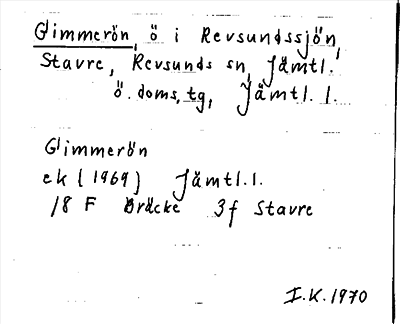 Glimmerön, ö i Revsundssjön,
Stavre, Revsunds sn, Jämtl.,
ö. doms. tg, Jämtl. l.
Glimmerön
ek (1969) Jämtl. l.
18 F Bräcke 3f Stavre
I.K. 1970